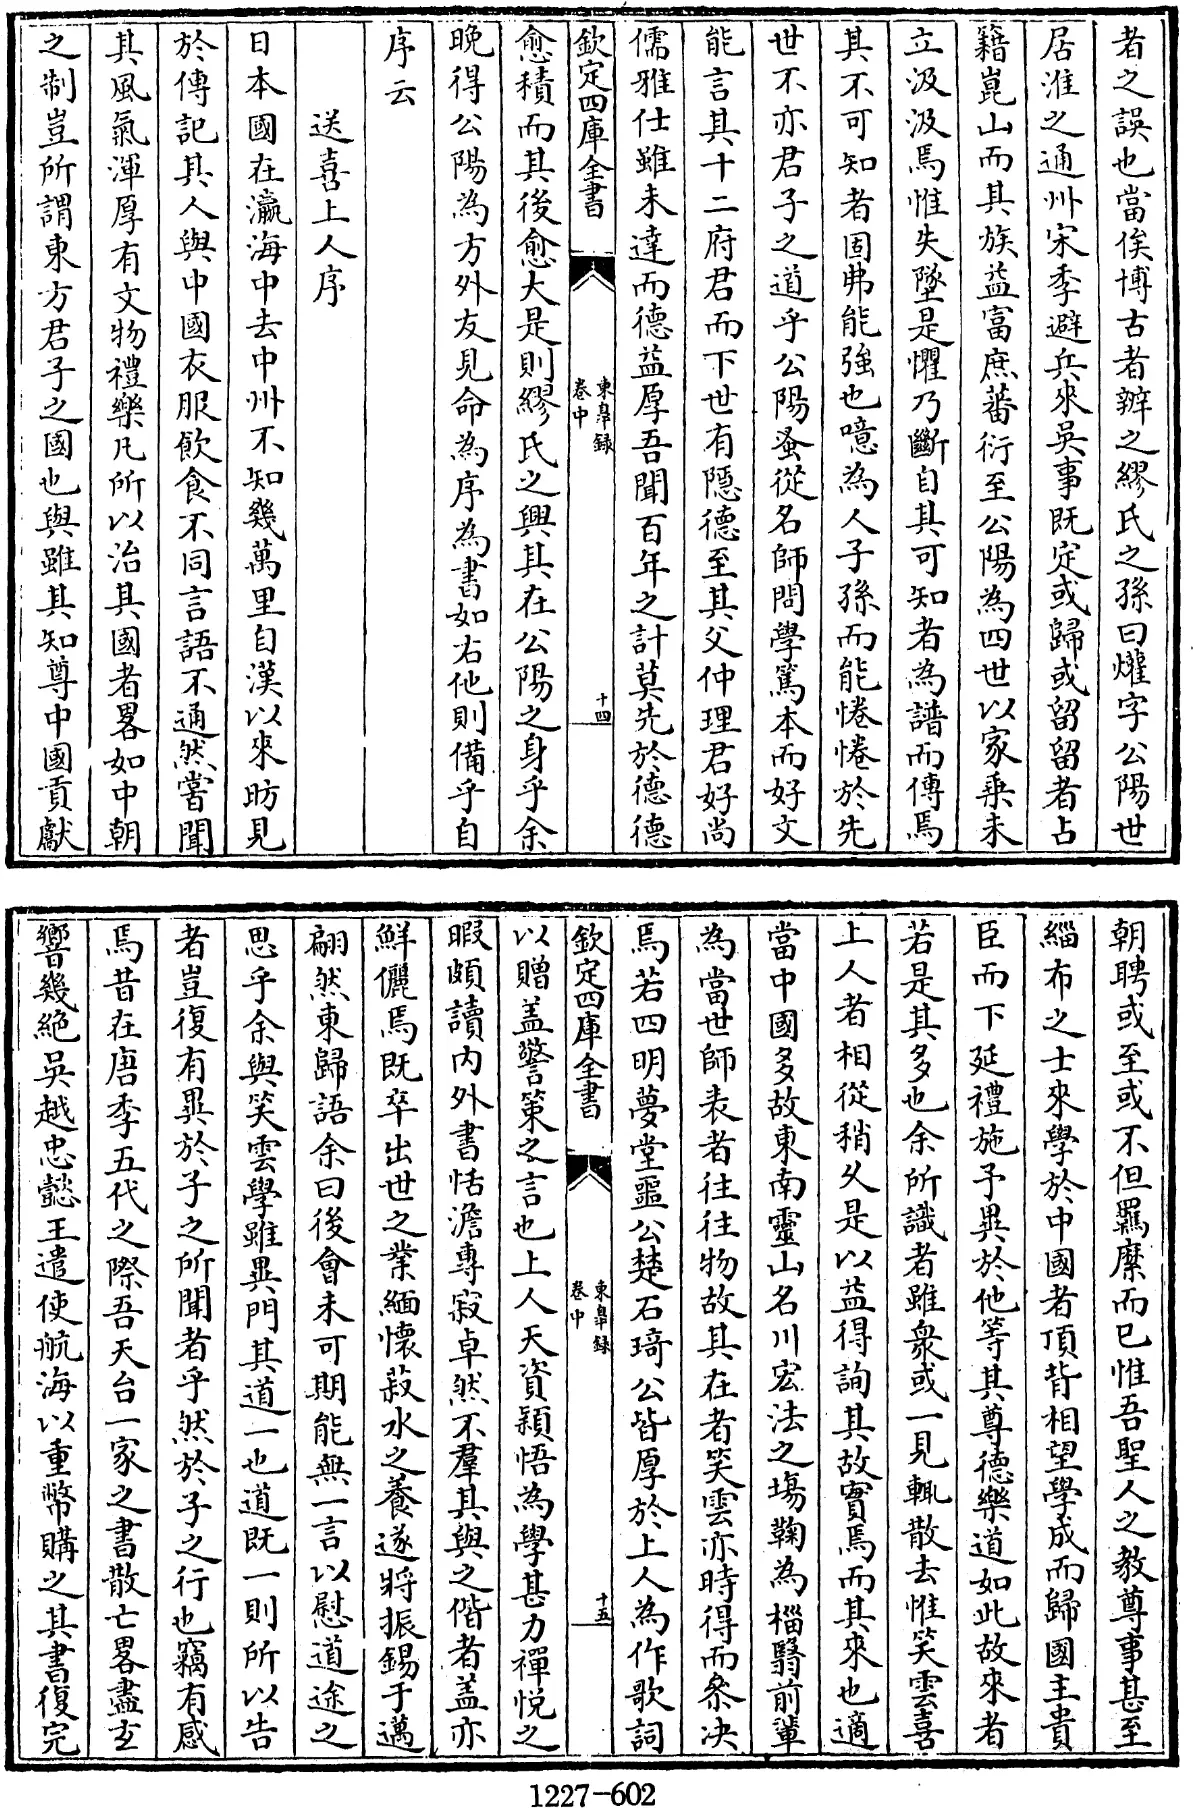 者之誤也當俟博古者辨之繆氏之孫曰燿字公陽世
居淮之通州宋季避兵來吳事既定或歸或留留者占
籍崑山而其族益富庶蕃衍至公陽為四世以家乘未
立汲汲焉惟失墜是懼乃斷自其可知者為譜而傳焉
其不可知者固弗能強也噫為人子孫而能惓惓於先
世不亦君子之道乎公陽蚤從名師問學篤本而好文
能言其十二府君而下世有隱德至其父仲理君好尚
儒雅仕雖未達而德益厚吾聞百年之計莫先於德德
欽定四庫全書 東臯録 卷中 十四
愈積而其後愈大是則繆氏之興其在公陽之身乎余
晚得公陽為方外友見命為序為書如右他則備乎自
序云
送喜上人序
日本國在瀛海中去中州不知幾萬里自漢以來昉見
於傳記其人與中國衣服飲食不同言語不通然嘗聞
其風氣渾厚有文物禮樂凡所以治其國者畧如中朝
之制豈所謂東方君子之國也與雖其知尊中國貢獻
朝聘或至或不但羈縻而已惟吾聖人之教尊事甚至
緇布之士來學於中國者頂背相望學成而歸國主貴
臣而下延禮施予異於他等其尊德樂道如此故來者
若是其多也余所識者雖衆或一見輒散去惟笑雲喜
上人者相從稍久是以益得詢其故實焉而其來也適
當中國多故東南靈山名川宏法之場鞠為榴翳前輩
為當世師表者往往物故其在者笑雲亦時得而叅決
焉若四明夢堂噩公楚石琦公皆厚於上人為作歌詞
欽定四庫全書 東臯録 卷中 十五
以贈盖警策之言也上人天資穎悟為學甚力禪悅之
暇頗讀內外書恬澹專寂卓然不羣其與之偕者盖亦
鮮儷焉既卒出世之業緬懷菽水之養遂將振錫于邁
翩然東歸語余曰後會未可期能無一言以慰道途之
思乎余與笑雲學雖異門其道一也道既一則所以告
者豈復有異於子之所聞者乎然於子之行也竊有感
焉昔在唐季五代之際吾天台一家之書散亡畧盡玄
響幾絕吳越忠懿王遣使航海以重幣購之其書復完
1227-602